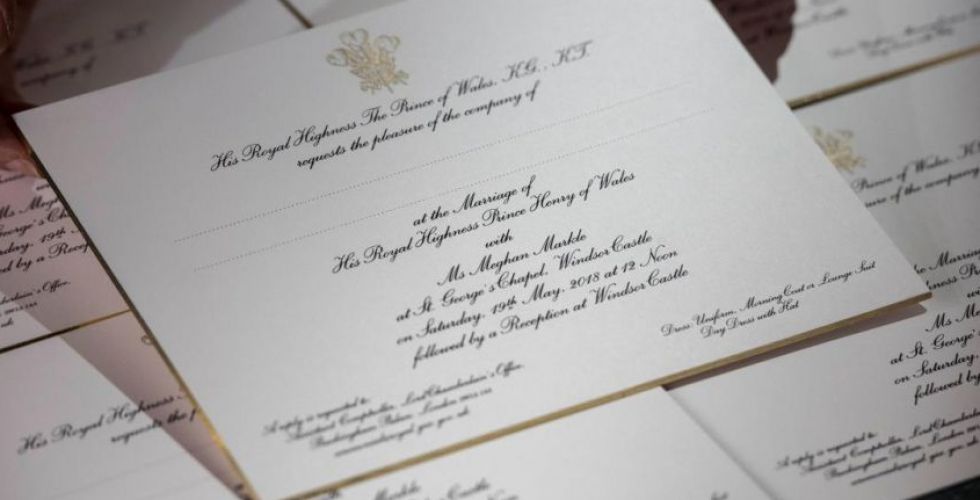 His Royal Highness The Prince of Wales, K.G., K.T.
requests the pleasure of the company of
at the Marriage of
His Royal Highness Prince Henry of Wales
with
Ms Meghan Markle
at St. George's Chapel, Windsor Castle
on Saturday, 19th May, 2018 at 12 Noon
followed by a Reception at Windsor Castle
Dress: Uniform, Morning Coat or Lounge Suit
Day Dress with Hat
A reply is requested to:
Assistant Comptroller, Lord Chamberlain's Office,
Buckingham Palace, London
company of
Ms Megh
George's Cha
rday, 19th
wed by a Recep
amberlain's Office,
His Royal Highness
requests the p
Markle
Prince of Wales, K.G
ure of the company
he Marriage
hness Pri
wi
Ms Me
at St. George'
on Saturday
followed by
A reply is requested to:
Assistant Comptroller, Lord Cham
Buckingham Palace, London